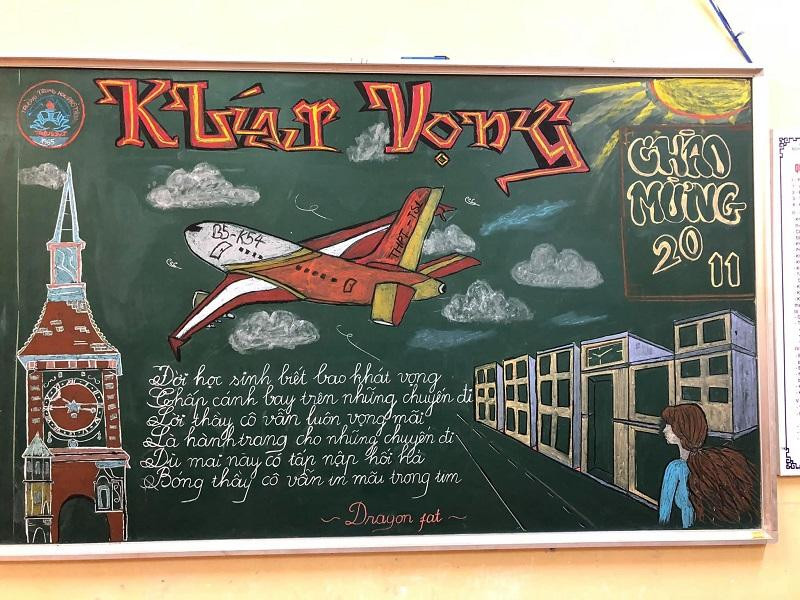 Khát Vọng
CHÀO
MỪNG
20
11
B5-K54
THPT-TSL
1965
Đời học sinh biết bao khát vọng
Chấp cánh bay trên những chuyến đi
Lời thầy cô vẫn luôn vọng mãi
Là hành trang cho những chuyến đi
Dù mai này có tấp nập hối hả
Bóng thầy cô vẫn in mãi trong tim
~ Dragon fat ~